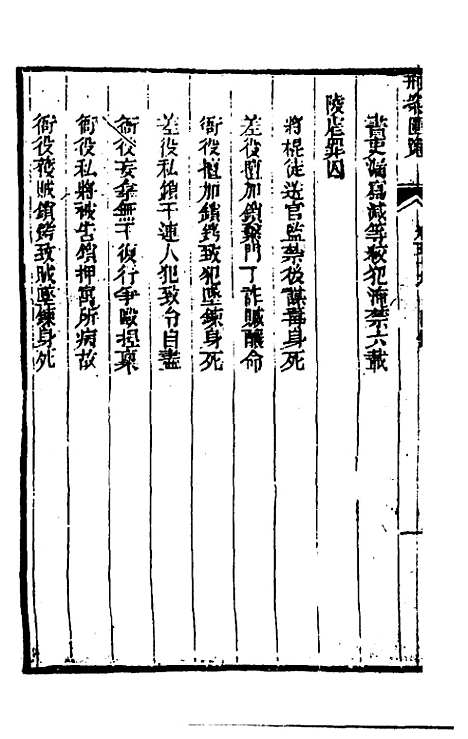 刑案匯覽
書吏漏寫減等絞犯淹禁六載
陵虐罪囚
將棍徒送官監禁後謀毒身死
差役擅加鎖繫門丁詐贓釀命
衙役擅加鎖銬致犯墜鍊身死
差役私鎖干連人犯致令自盡
衙役妄拿無干復行爭毆捏稟
衙役私將被告鎖押寓所病故
衙役獲賊鎖銬致賊墜鍊身死